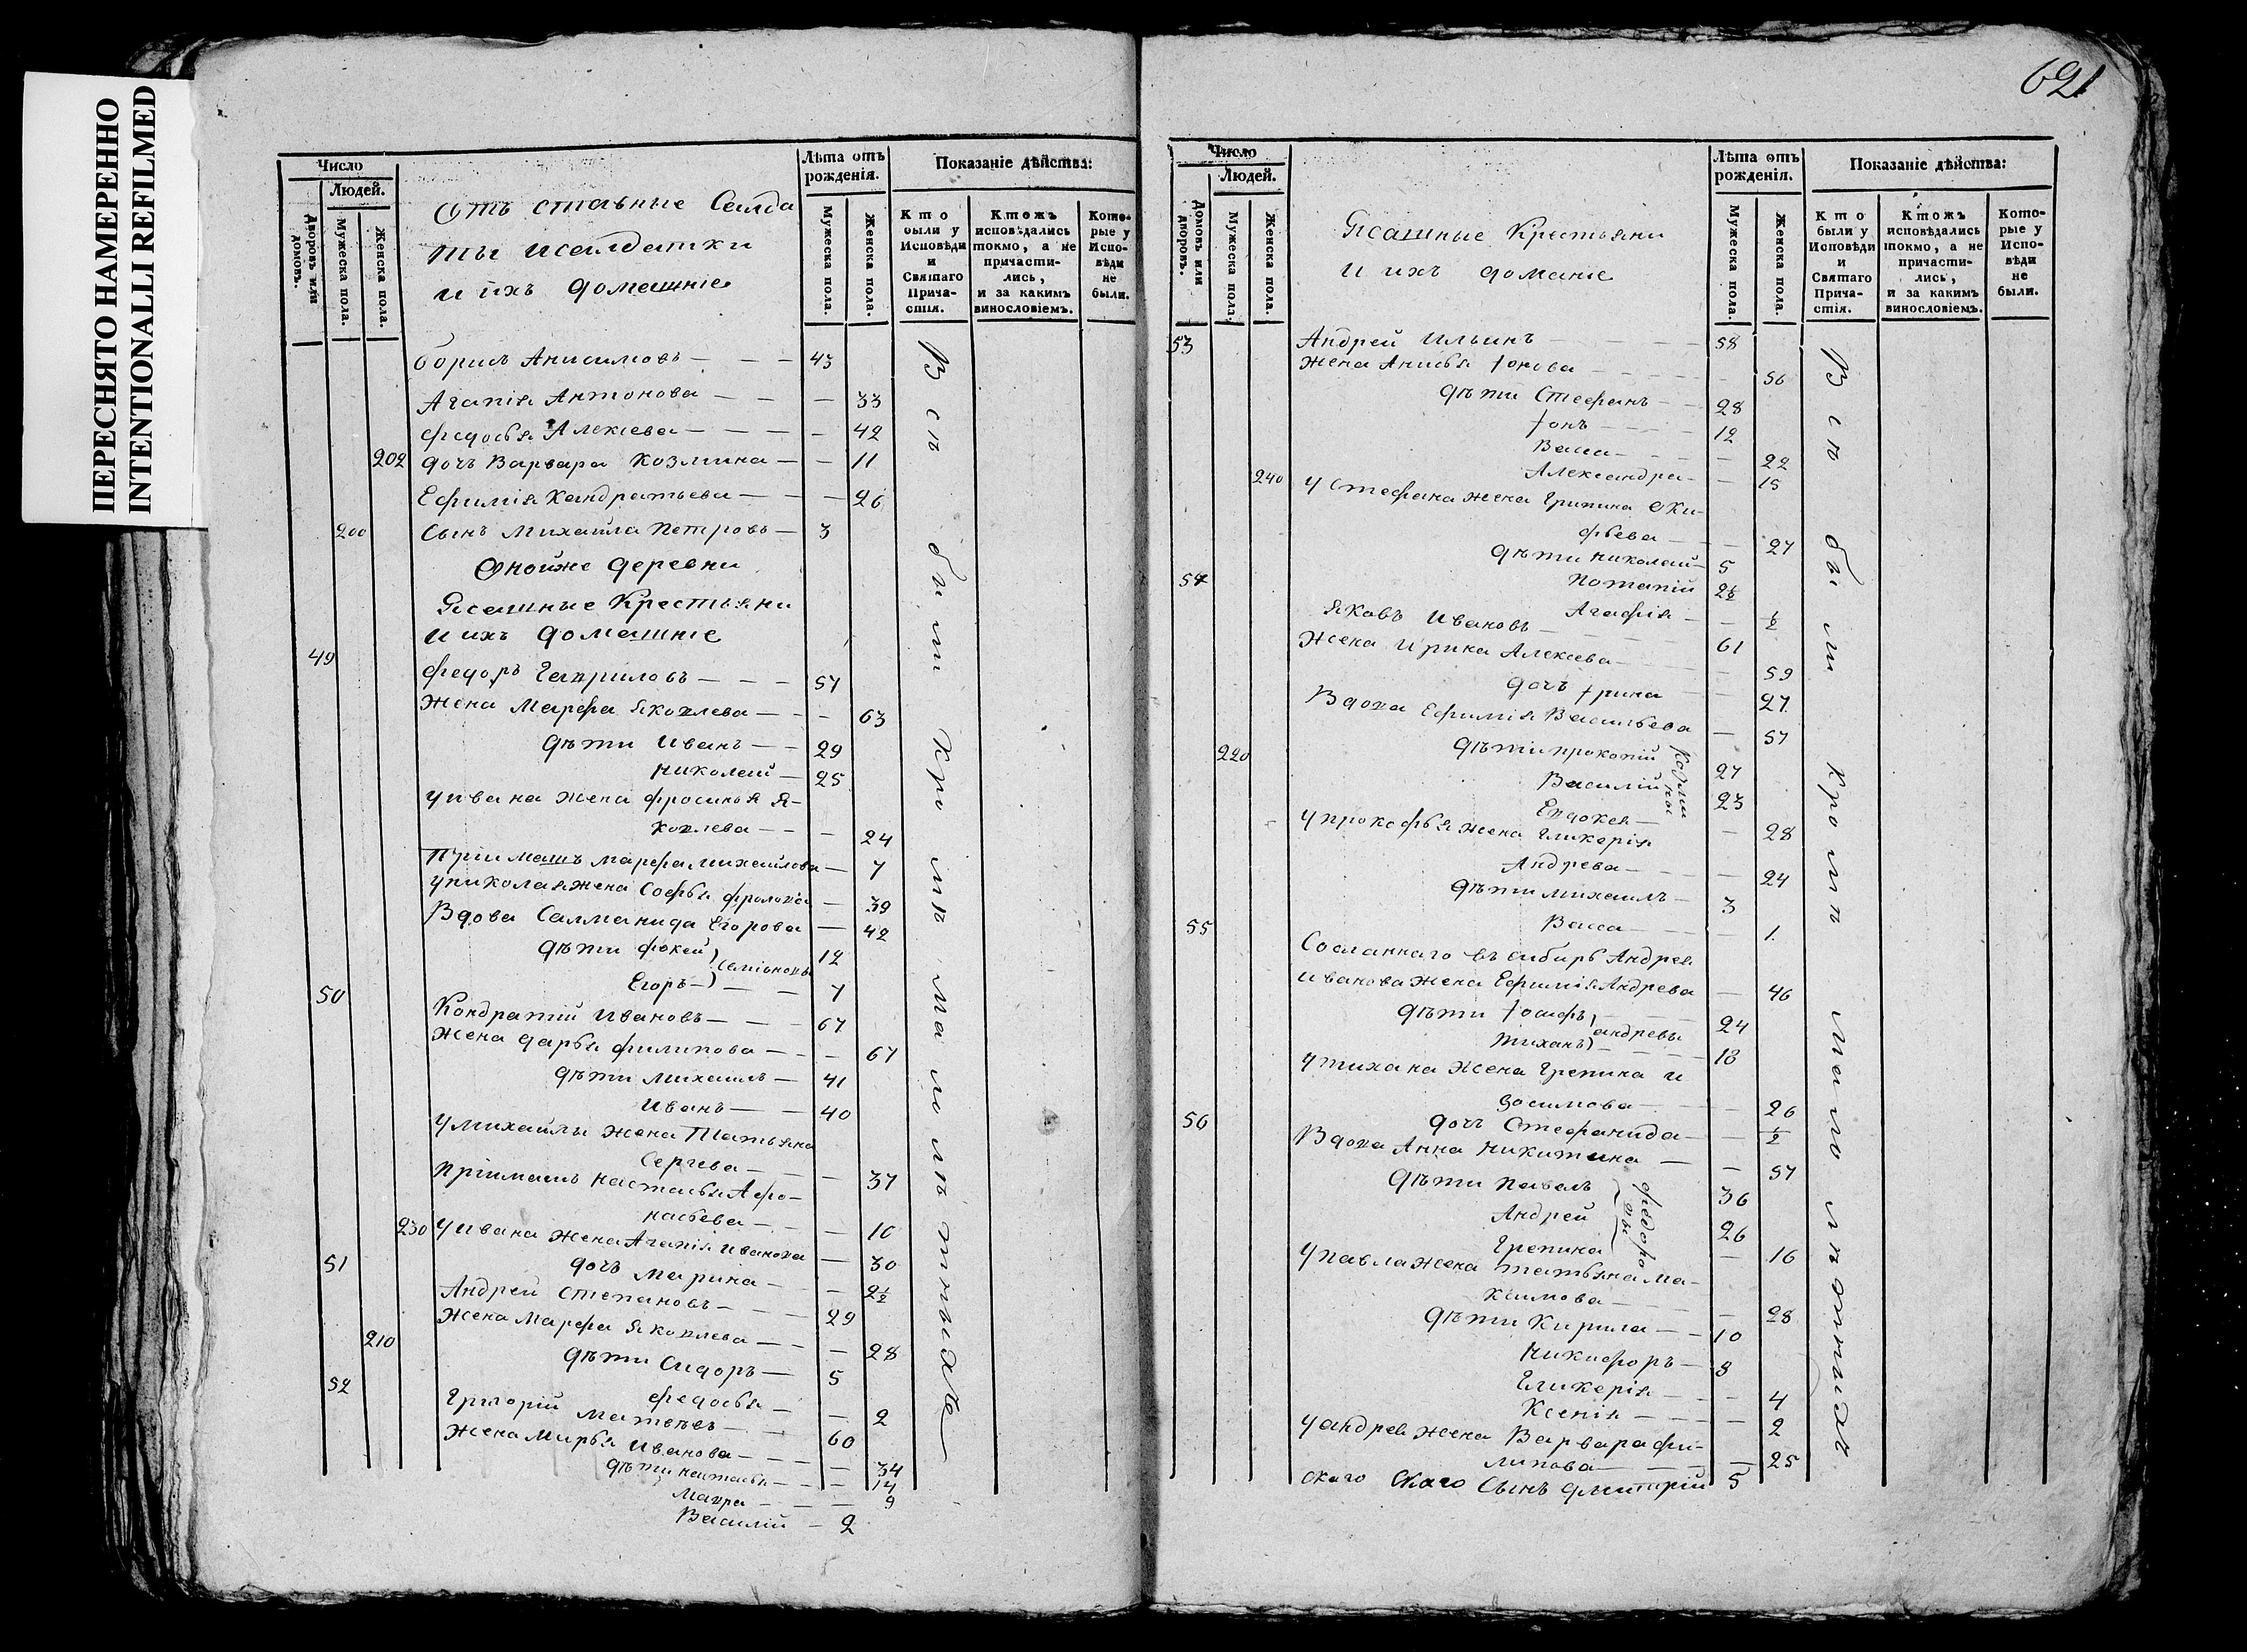 ПЕРЕСНЯТО НАМЕРЕННО
INTENTIONALLI REFILMED
Число
Людей.
Дворовъ или домовъ.
Мужеска пола.
Женска пола.
Отъ ставные Салда
ты исалдатки
и ихъ домашніе
Лѣта отъ рожденія.
Мужеска пола.
Женска пола.
Показаніе дѣйства:
Кто были у Исповѣди и Святаго Причастія.
Ктожъ исповѣдались токмо, а не причастились, и за какимъ винословіемъ.
Которые у Исповѣди не были.
Борисъ Анисимовъ — 43
Агапія Антонова — 33
Федосья Алексева — 42
202 дочь Варвара Козмина — 11
Ефимія Кандратьева — 26
200 Сынъ Михайла Петровъ — 3
Оной же деревни
Ясашные Крестьяни
и ихъ домашніе
49
Федоръ Гавриловъ — 57
Жена Марфа Яковлева — 63
дѣти Иванъ — 29
Николай — 25
у ивана жена Фросинья Я-
ковлева — 24
Приимашъ Марфа Михайлова — 7
у николая жена Софья Фролова — 39
Вдова Салманида Егорова — 42
дѣти Фокей 12
Егоръ — 7
50
Кондратій Ивановъ — 67
Жена Дарья Филипова — 67
дѣти Михаилъ — 41
Иванъ — 40
у михайлы жена Татьяна
Сергева — 37
Пріимашъ Настасья Афо-
насьева — 10
230 у ивана жена Агапія Иванова — 30
51 дочь Марина — 2½
Андрей Степановъ — 29
Жена Марфа Яковлева — 28
210
дѣти Сидоръ — 5
52 Федосья — 2
Григорій Матвѣевъ — 60
Жена Марья Иванова — 34
дѣти Настасья — 14
Мавра — 9
Василій — 2
Всѣ были кромѣ малолѣтныхъ
621
Число
Людей.
Домовъ или дворовъ.
Мужеска пола.
Женска пола.
Ясашные Крестьяни
и ихъ доманіе
Лѣта отъ рожденія.
Мужеска пола.
Женска пола.
Показаніе дѣйства:
Кто были у Исповѣди и Святаго Причастія.
Ктожъ исповѣдались токмо, а не причастились, и за какимъ винословіемъ.
Которые у Исповѣди не были.
53 Андрей Ильинъ — 58
Жена Анисья Іонова — 56
дѣти Стефанъ — 28
Іонъ — 12
Васса — 22
Александра — 15
240 у Стефана жена Грипина Оки-
фьева — 27
дѣти Николай — 5
54 Потапій 2½
Агафія — ½
Яковъ Ивановъ — 61
Жена Ирина Алексева — 59
дочь Ірина — 27
Вдова Ефимія Васильева — 57
220 дѣти Прокопій 27
Василій 23
Козмины
Евдокея — 28
у прокофья жена Гликерія
Андрева — 24
дѣти Михаилъ — 3
55 Васса — 1
Сосланнаго въ сибирь Андрея
Иванова жена Ефимія Андрева — 46
дѣти Іосифъ 24
андревы
Тиханъ — 18
у тихана жена Грепина и
Зосимова — 26
56 дочь Стефанида — ½
Вдова Анна Никитина — 57
дѣти Павелъ 36
Андрей 26
Федоровы
Грепина — 16
у павла жена Татьяна Ма-
ксимова — 28
дѣти Кирила — 10
Никифоръ — 8
Гликерія — 4
Ксенія — 2
у андрея жена Варвара Фи-
липова — 25
Сынъ Дмитрій 5
Всѣ были кромѣ малолѣтныхъ